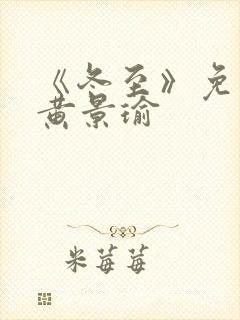 《冬至》免
黄景瑜
米莓莓